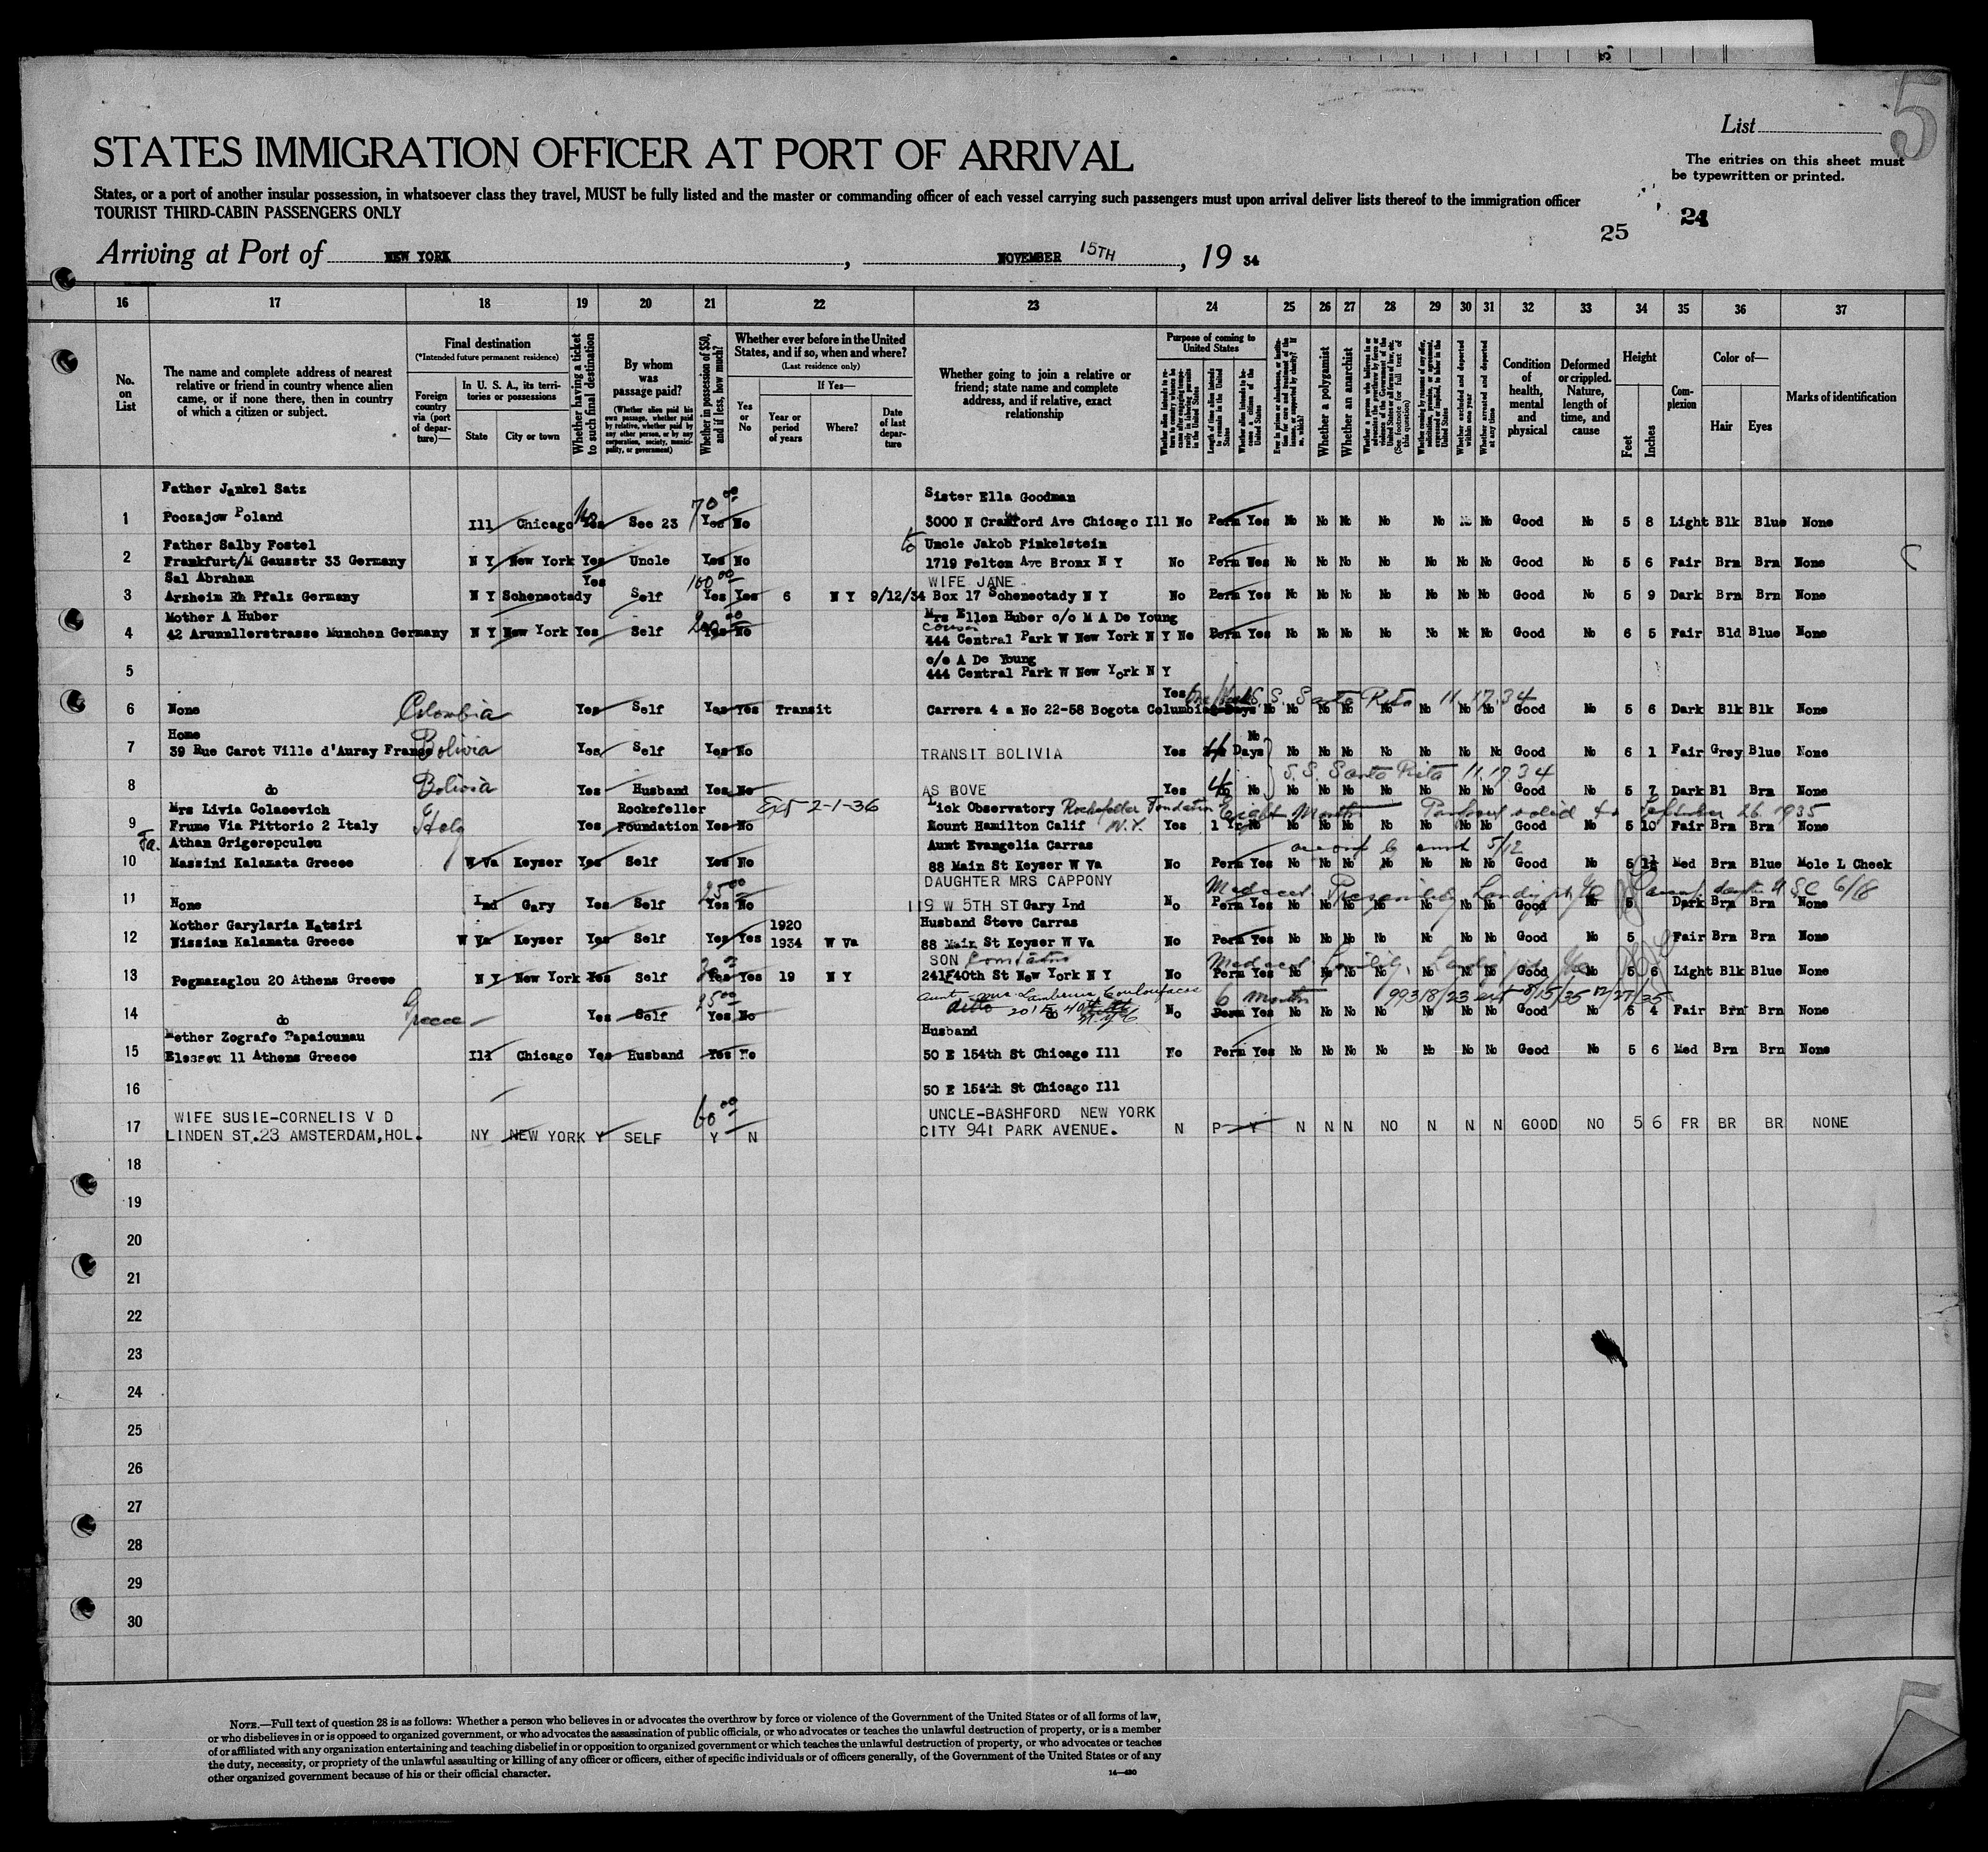 List
5
The entries on this sheet must
be typewritten or printed.
STATES IMMIGRATION OFFICER AT PORT OF ARRIVAL
States, or a port of another insular possession, in whatsoever class they travel, MUST be fully listed and the master or commanding officer of each vessel carrying such passengers must upon arrival deliver lists thereof to the immigration officer
TOURIST THIRD-CABIN PASSENGERS ONLY
25 24
Arriving at Port of NEW YORK, NOVEMBER 15TH, 19 34
16 17 18 19 20 21 22 23 24 25 26 27 28 29 30 31 32 33 34 35 36 37
No. on List
The name and complete address of nearest relative or friend in country whence alien came, or if none there, then in country of which a citizen or subject.
Final destination
(*Intended future permanent residence)
Foreign country via (port of departure)—
In U. S. A., its territories or possessions
State City or town
Whether having a ticket to such final destination
By whom was passage paid?
(Whether alien paid his own passage, whether paid by relative, whether paid by any other person, or by any corporation, society, municipality, or government)
Whether in possession of $50, and if less, how much?
Whether ever before in the United States, and if so, when and where?
(Last residence only)
Yes or No
If Yes—
Year or period of years
Where?
Date of last departure
Whether going to join a relative or friend; state name and complete address, and if relative, exact relationship
Purpose of coming to United States
Length of time alien intends to remain in the United States
Whether alien intends to become a citizen of the United States
Whether a polygamist
Whether an anarchist
Whether excluded and deported within one year
Whether arrested and deported at any time
Condition of health, mental and physical
Deformed or crippled. Nature, length of time, and cause
Height
Feet Inches
Complexion
Color of—
Hair Eyes
Marks of identification
Father Jankel Satz Sister Ella Goodman
1 Poczajow Poland Ill Chicago Yes No See 23 70 00 Yes No 3000 N Crawford Ave Chicago Ill No Perm Yes No No No No No No No Good No 5 8 Light Blk Blue None
Father Salby Fostel to Uncle Jakob Finkelstein
2 Frankfurt/M Gausstr 33 Germany N Y New York Yes Uncle Yes No 1719 Felton Ave Bronx N Y No Perm Yes No No No No No No No Good No 5 6 Fair Brn Brn None
Sal Abraham Yes 100 00 WIFE JANE
3 Arzheim Rh Pfalz Germany N Y Schenectady Self Yes Yes 6 N Y 9/12/34 Box 17 Schenectady N Y No Perm Yes No No No No No No No Good No 5 9 Dark Brn Brn None
Mother A Huber 200 00 Mrs Ellen Huber c/o M A De Young
cousin
4 42 Arunnllerstrasse Munchen Germany N Y New York Yes Self Yes No 444 Central Park W New York N Y No Perm Yes No No No No No No No Good No 6 5 Fair Bld Blue None
c/o A De Young
5 444 Central Park W New York N Y
Yes S.S. Santa Rita 11.17.34
6 None Colombia Yes Self Yes Yes Transit Carrera 4 a No 22-58 Bogota Columbia Days No No No No No No No No Good No 5 6 Dark Blk Blk None
Home No
7 39 Rue Carot Ville d'Auray France Bolivia Yes Self Yes No TRANSIT BOLIVIA Yes 4 Days No No No No No No No Good No 6 1 Fair Grey Blue None
S.S. Santa Rita 11.17.34
8 do Bolivia Yes Husband Yes No AS BOVE Yes 4 No No No No No No No No Good No 5 7 Dark Bl Brn None
Mrs Livia Colacevich Rockefeller Ext 2-1-36 Lick Observatory Rockefeller Fondation Eight Months Passport valid to September 26 1935
9 Frume Via Pittorio 2 Italy Italy Yes Foundation Yes No Mount Hamilton Calif N.Y. Yes 1 Yr No No No No No No No No Good No 5 10 Fair Brn Brn None
Fa. Athan Grigeropculou Aunt Evangelia Carras 5/12
10 Massini Kalamata Greece W Va Keyser Yes Self Yes No 88 Main St Keyser W Va No Perm Yes No No No No No No No Good No 5 Med Brn Blue Mole L Cheek
25 00 DAUGHTER MRS CAPPONY 6/18
11 None Ind Gary Yes Self Yes No 119 W 5TH ST Gary Ind No Perm Yes No No No No No No No Good No 5 Dark Brn Brn None
Mother Garylaria Natsiri 1920 Husband Steve Carras
12 Nissian Kalamata Greece W Va Keyser Yes Self Yes Yes 1934 W Va 88 Main St Keyser W Va No Perm Yes No No No No No No No Good No 5 Fair Brn Brn None
SON
13 Pegmazaglou 20 Athens Greece N Y New York Yes Self Yes Yes 19 N Y 241 E 40th St New York N Y No Perm Yes No No No No No No No Good No 5 6 Light Blk Blue None
25 00 aunt 6 months 99318/23 ext 8/15/35 12/27/35
14 do Greece Yes Self Yes No ditto do No Perm Yes No No No No No No No Good No 5 4 Fair Brn Brn None
Mother Zografe Papaiounau Husband
15 Elesseu 11 Athens Greece Ill Chicago Yes Husband Yes No 50 E 154th St Chicago Ill No Perm Yes No No No No No No No Good No 5 6 Med Brn Brn None
16 50 E 154th St Chicago Ill
WIFE SUSIE-CORNELIS V D 60 00 UNCLE-BASHFORD NEW YORK
17 LINDEN ST.23 AMSTERDAM,HOL. NY NEW YORK Y SELF Y N CITY 941 PARK AVENUE. N P Y N N N NO N N N GOOD NO 5 6 FR BR BR NONE
18
19
20
21
22
23
24
25
26
27
28
29
30
NOTE.—Full text of question 28 is as follows: Whether a person who believes in or advocates the overthrow by force or violence of the Government of the United States or of all forms of law,
or who disbelieves in or is opposed to organized government, or who advocates the assassination of public officials, or who advocates or teaches the unlawful destruction of property, or is a member
of or affiliated with any organization entertaining and teaching disbelief in or opposition to organized government or which teaches the unlawful destruction of property, or who advocates or teaches
the duty, necessity, or propriety of the unlawful assaulting or killing of any officer or officers, either of specific individuals or of officers generally, of the Government of the United States or of any
other organized government because of his or their official character.
14—430
5